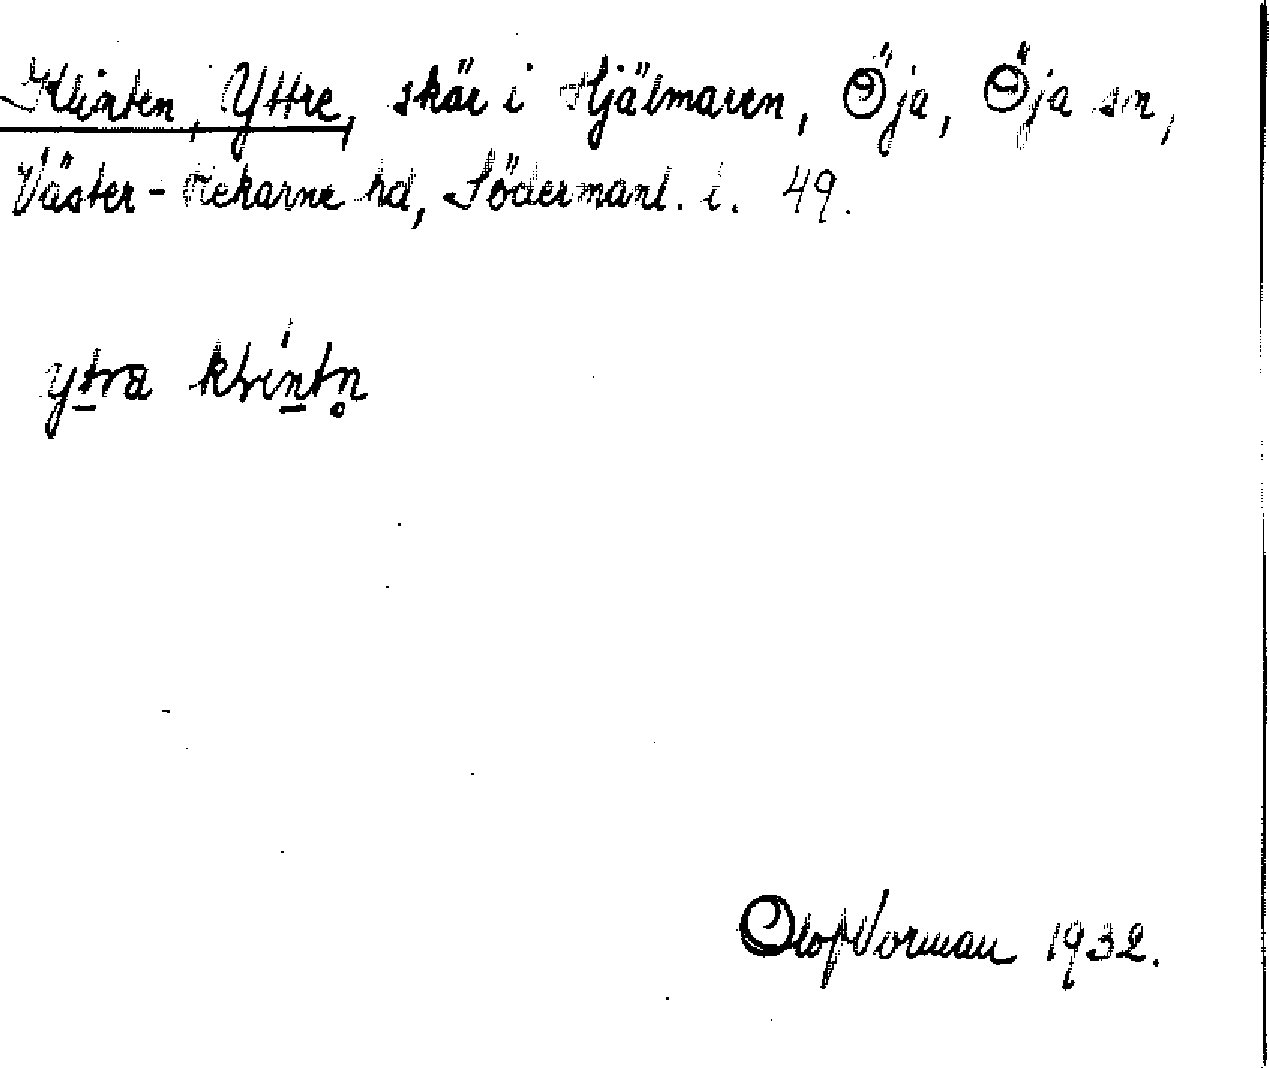 Klinten, Yttre, skär i Hjälmaren, Öja, Öja sn,
Väster-Rekarne hd, Södermanl. l. 49.
ytra kḷintn̥
Olof Vorman 1932.